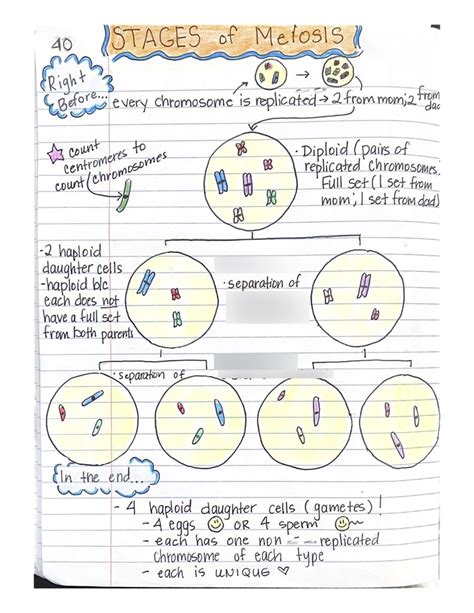 40
STAGES of MEIOSIS
Right
Before...
every chromosome is replicated → 2 from mom; 2 from
dad
☆ count
centromeres to
count chromosomes
· Diploid (pairs of
replicated chromosomes.
Full set (1 set from
mom, 1 set from dad)
-2 haploid
daughter cells
-haploid b/c
each does not
have a full set
from both parents
· separation of
· separation of
In the end...
- 4 haploid daughter cells (gametes)!
- 4 eggs ☺ OR 4 sperm ☺~
- each has one non---replicated
chromosome of each type
- each is UNIQUE ♡